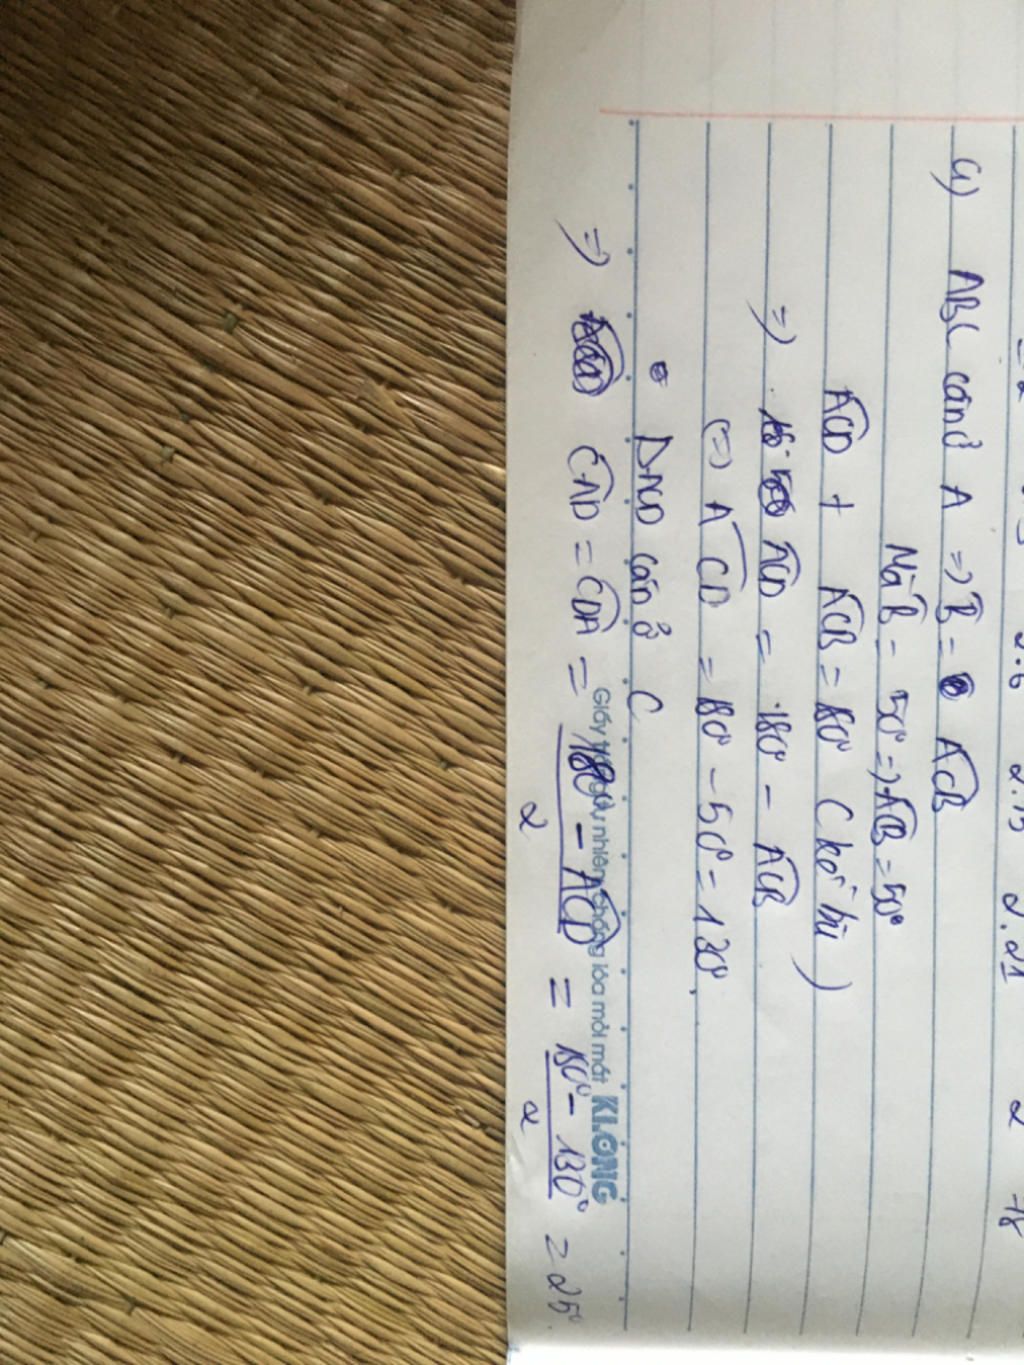 a) ABC cân ở A => B̂ = ACB
Mà B̂ = 50° => ACB = 50°
ACD + ACB = 180° ( kề bù )
=> ACD = 180° - ACB
(=) ACD = 180° - 50° = 130°.
ΔACD cân ở C
=> CAD = CDA = 180° - ACD / 2 = 180° - 130° / 2 = 25°.
Giấy tự nhiên chống lóa mỏi mắt KLONG